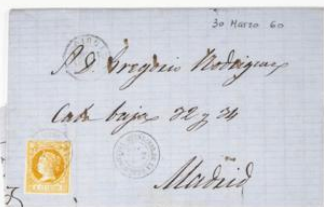 30 Marzo 60
S. D. Gregorio Rodriguez
Cava baja 32 y 34
Madrid